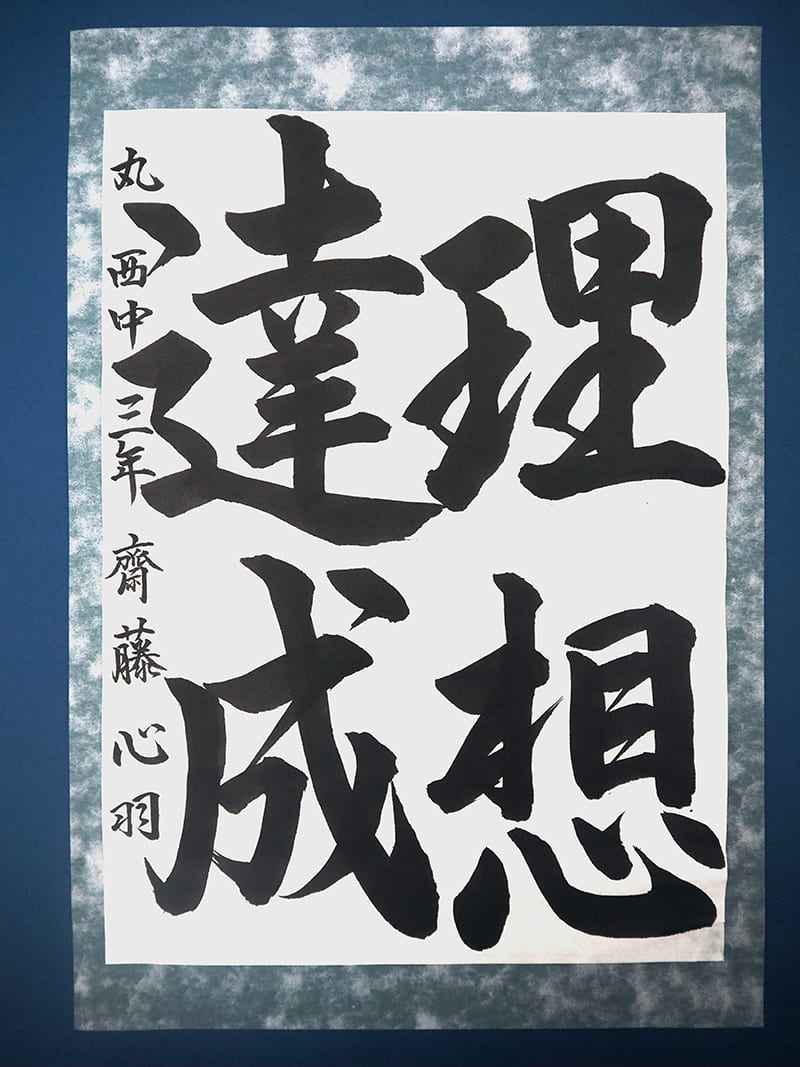 理想
達成
丸西中三年齋藤心羽